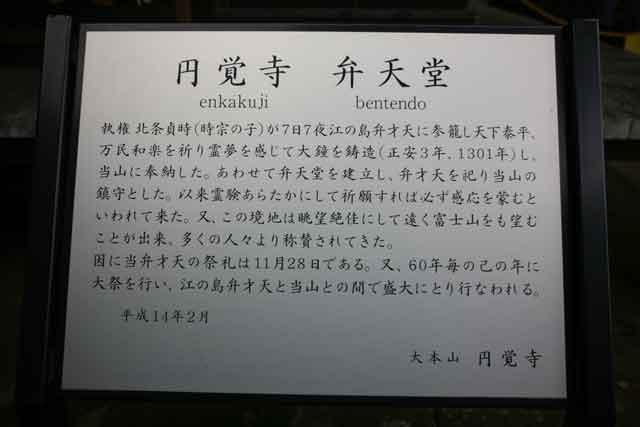 円覚寺 弁天堂
enkakuji bentendo
執権 北条貞時(時宗の子)が7日7夜江の島弁才天に参籠し天下泰平、
万民和楽を祈り霊夢を感じて大鐘を鋳造(正安3年、1301年)し、
当山に奉納した。あわせて弁天堂を建立し、弁才天を祀り当山の
鎮守とした。以来霊験あらたかにして祈願すれば必ず感応を蒙むと
いわれて来た。又、この境地は眺望絶佳にして遠く富士山をも望む
ことが出来、多くの人々より称賛されてきた。
因に当弁才天の祭礼は11月28日である。又、60年毎の己の年に
大祭を行い、江の島弁才天と当山との間で盛大にとり行なわれる。
平成14年2月
大本山 円覚寺